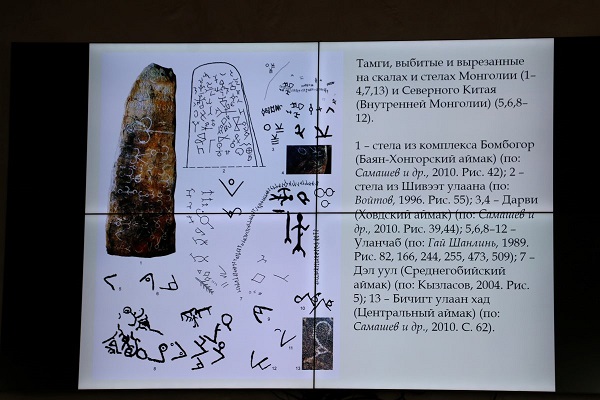 Тамги, выбитые и вырезанные
на скалах и стелах Монголии (1–
4,7,13) и Северного Китая
(Внутренней Монголии) (5,6,8–
12).
1 – стела из комплекса Бомбогор
(Баян-Хонгорский аймак) (по:
Самашев и др., 2010. Рис. 42); 2 –
стела из Шивээт улаана (по:
Войтов, 1996. Рис. 55); 3,4 – Дарви
(Ховдский аймак) (по: Самашев и
др., 2010. Рис. 39,44); 5,6,8–12 –
Уланчаб (по: Гай Шанлинь, 1989.
Рис. 82, 166, 244, 255, 473, 509); 7 –
Дэл уул (Среднегобийский
аймак) (по: Кызласов, 2004. Рис.
5); 13 – Бичигт улаан хад
(Центральный аймак) (по:
Самашев и др., 2010. С. 62).